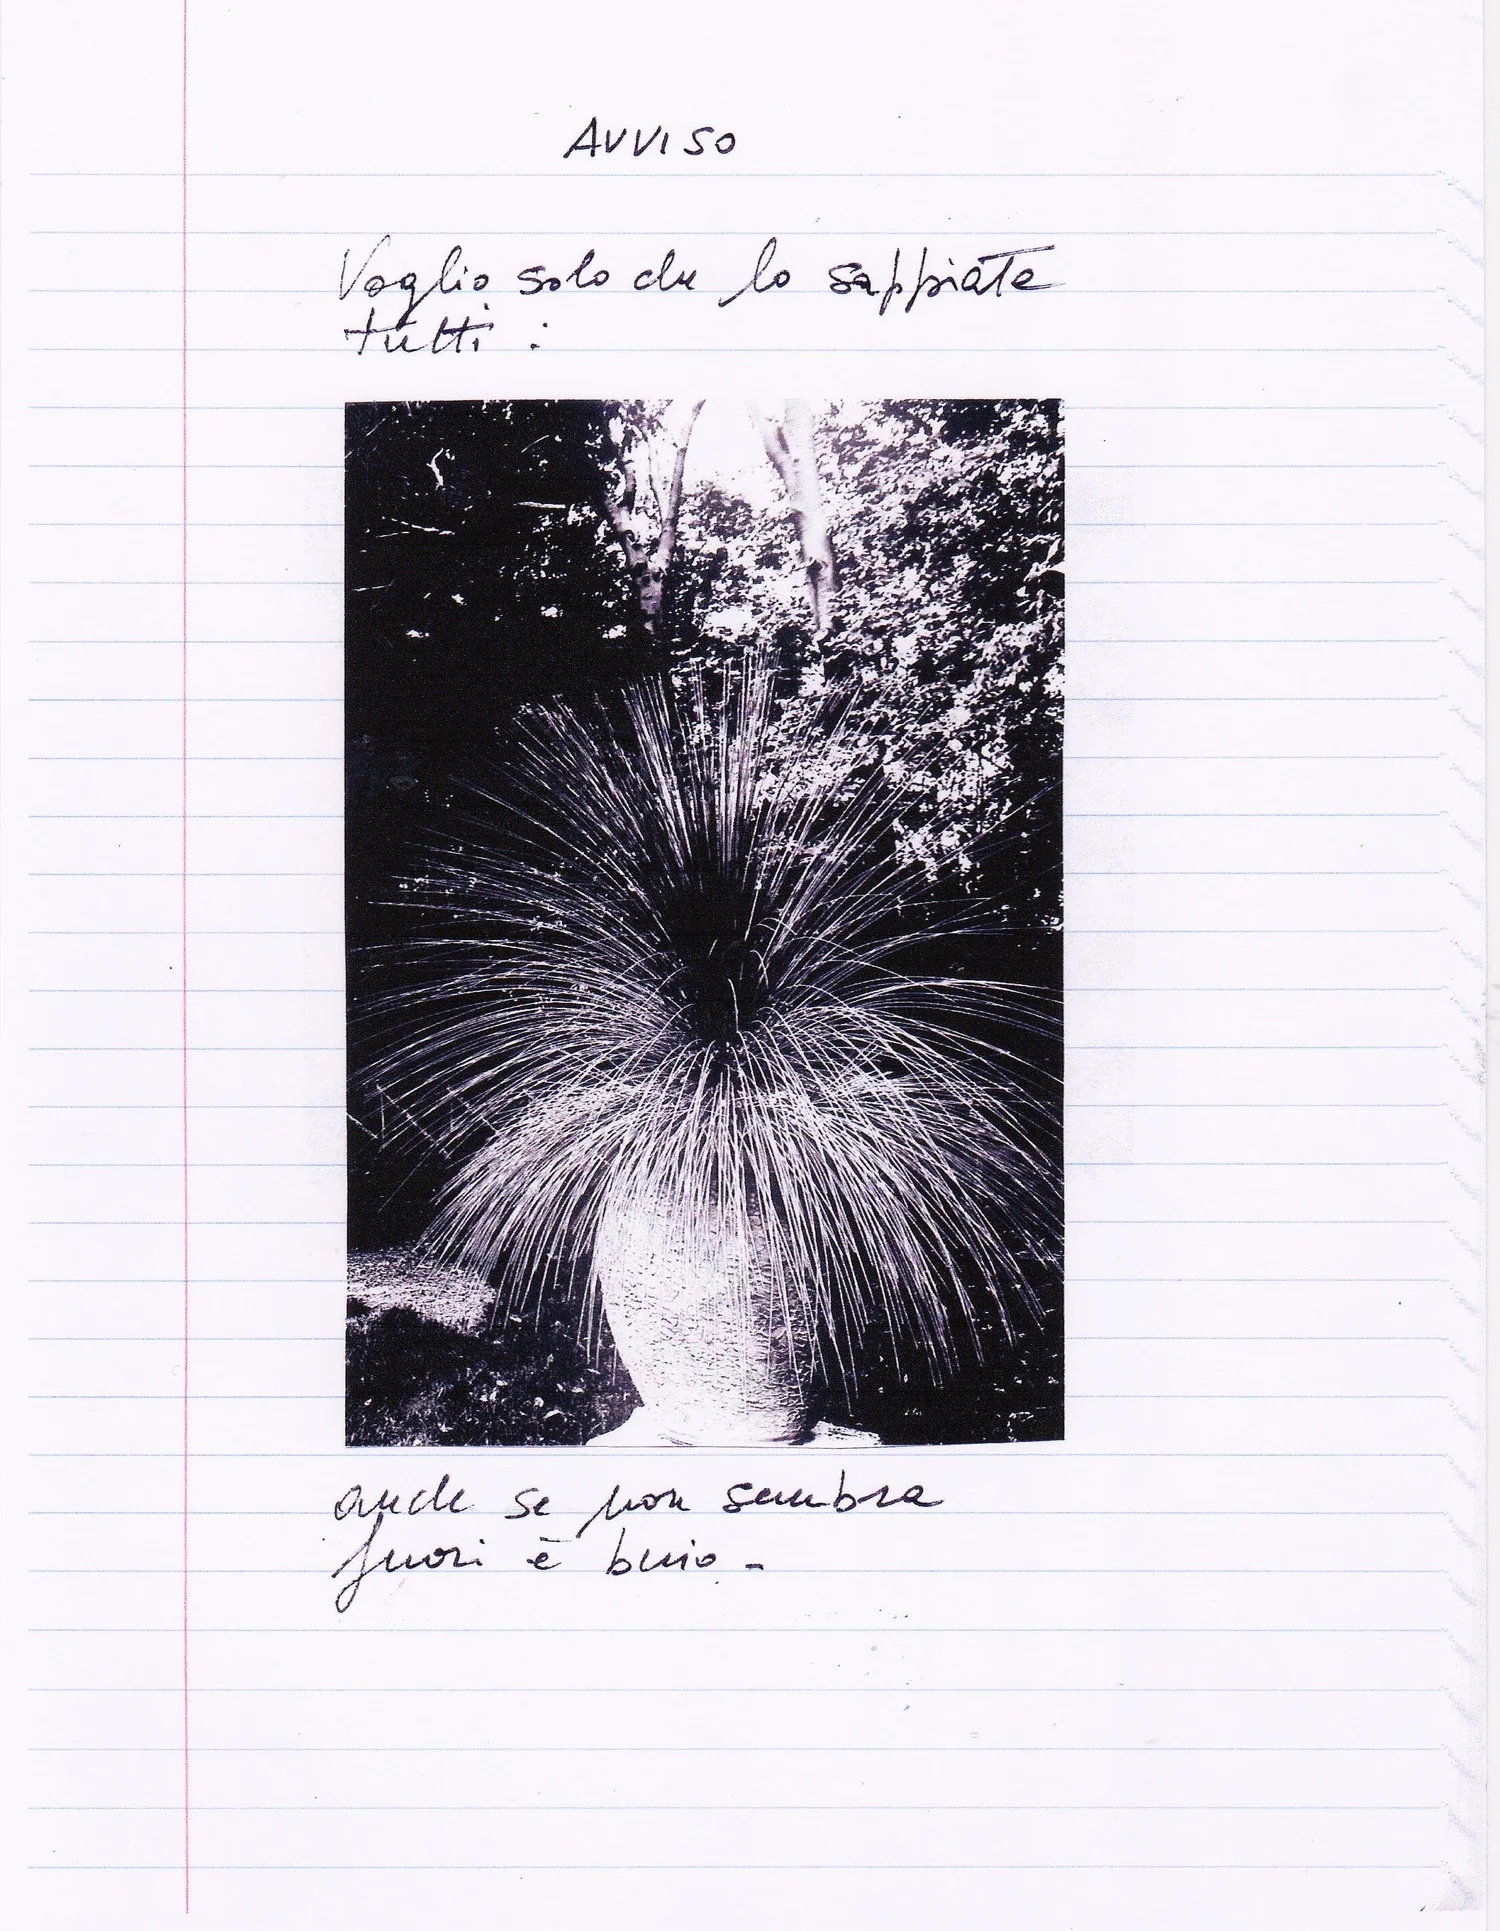 AVVISO
Voglio solo che lo sappiate
tutti :
anche se non sembra
fuori è buio -